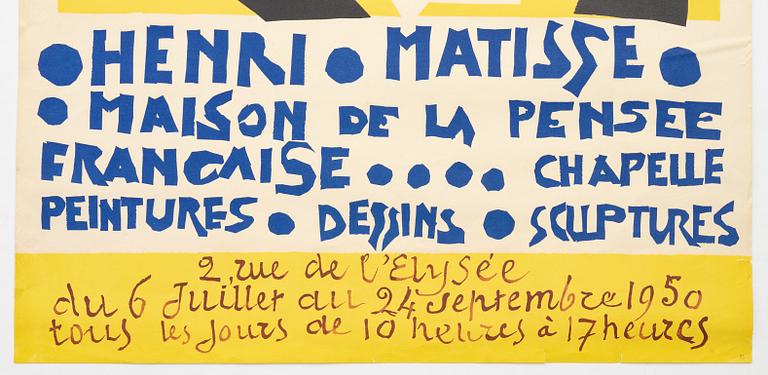 ● HENRI ● MATISSE ●
● MAISON DE LA PENSEE
FRANCAISE ● ● ● ● CHAPELLE
PEINTURES ● DESSINS ● SCULPTURES
2, rue de l'Elysée
du 6 Juillet au 24 septembre 1950
tous les jours de 10 heures à 17 heures